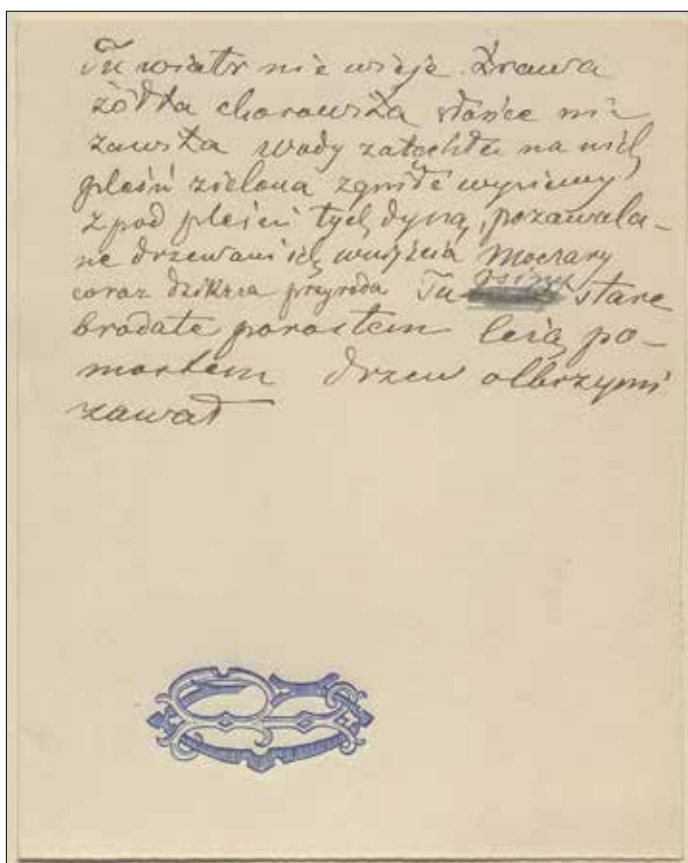 Tu wiatr nie wieje. Trawa
żółta chorowita słońce nie
zawsze wody zatęchłe na nich
pleśń zielona zgniłe wyziewy
z pod pleśni tych dyszą, pozawala-
ne drzewami ich wnijścia Moczary
coraz dziksza przyroda Tu osiny stare
brodate porostem leżą po-
mostem drzew olbrzymi
zawał